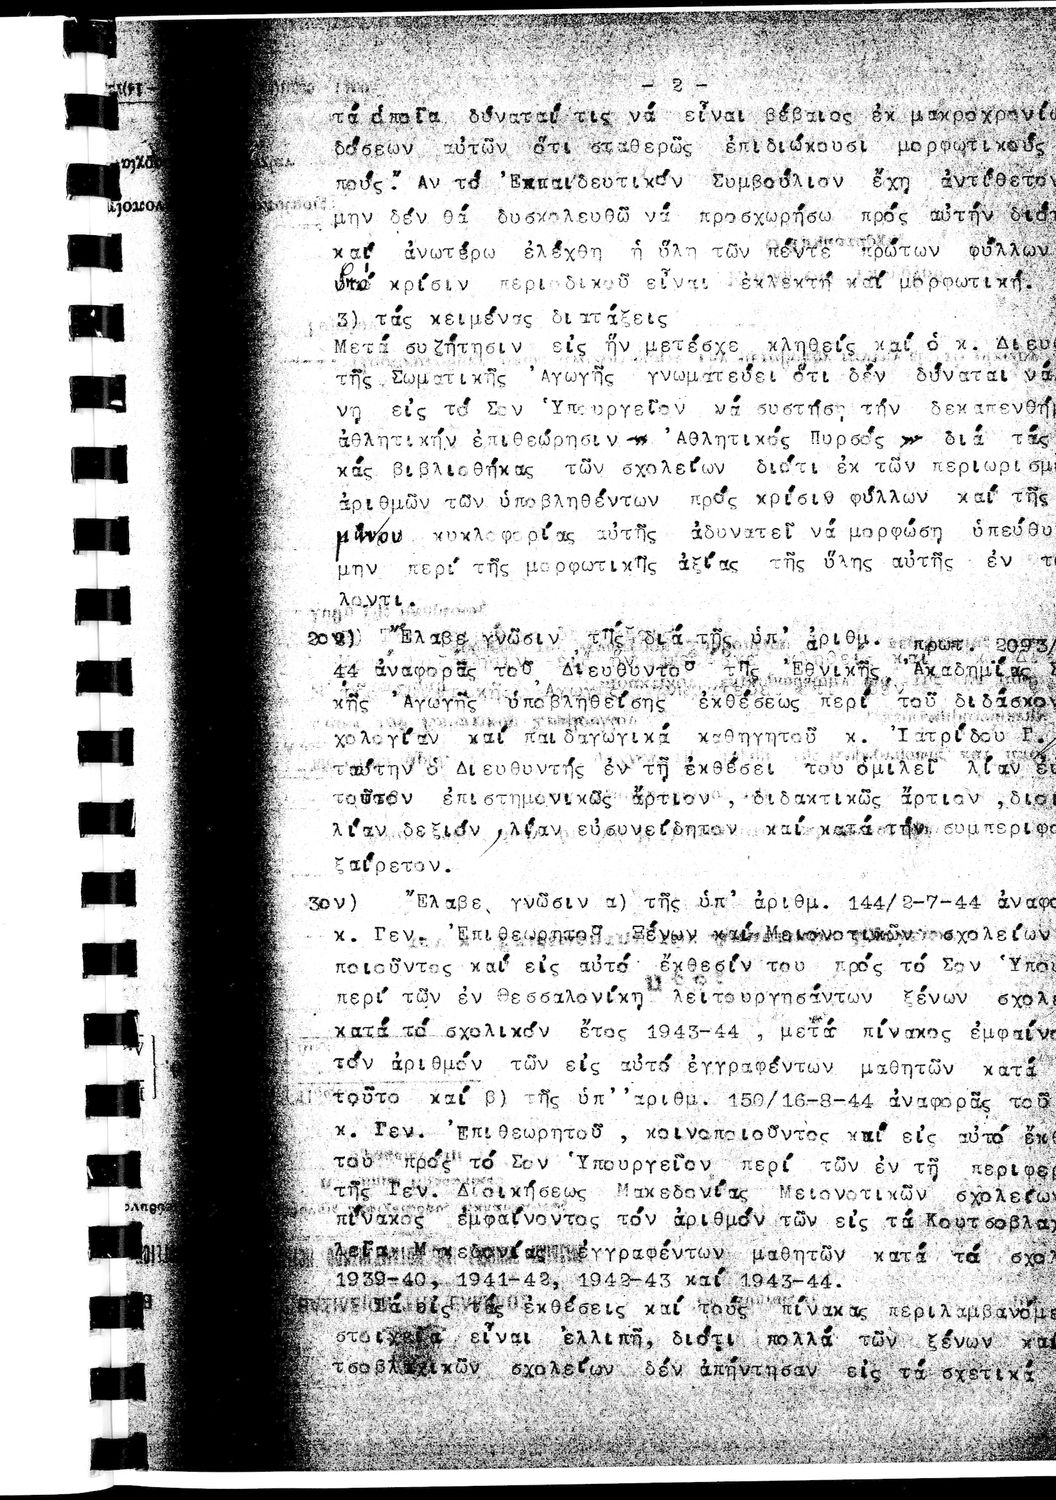 - 2 -
τά ὁποῖα δύναταί τις νά εἶναι βέβαιος ἐκ μακροχρονίο
δόσεων αὐτῶν ὅτι σταθερῶς ἐπιδιώκουσι μορφωτικούς
πούς. Ἄν τό Ἐκπαιδευτικόν Συμβούλιον ἔχη ἀντίθετον
μην δέν θά δυσκολευθῶ νά προσχωρήσω πρός αὐτήν διότ
καί ἀνωτέρω ἐλέχθη ἡ ὕλη τῶν πέντε πρώτων φύλλων
ὑπό κρίσιν περιοδικοῦ εἶναι ἐκλεκτή καί μορφωτική.
3) τάς κειμένας διατάξεις
Μετά συζήτησιν εἰς ἥν μετέσχε κληθείς καί ὁ κ. Διευθ
τῆς Σωματικῆς Ἀγωγῆς γνωματεύει ὅτι δέν δύναται νά
νη εἰς τό Σον Ὑπουργεῖον νά συστήση τήν δεκαπενθήμ
ἀθλητικήν ἐπιθεώρησιν " Ἀθλητικός Πυρσός " διά τάς
κάς βιβλιοθήκας τῶν σχολείων διότι ἐκ τῶν περιωρισμέ
ἀριθμῶν τῶν ὑποβληθέντων πρός κρίσιν φύλλων καί τῆς
μήνου κυκλοφορίας αὐτῆς ἀδυνατεῖ νά μορφώση ὑπεύθυ
μην περί τῆς μορφωτικῆς ἀξίας τῆς ὕλης αὐτῆς ἐν τ
λοντι.
2ον) Ἔλαβε γνῶσιν τῆς διά τῆς ὑπ' ἀριθμ. πρωτ. 2093/
44 ἀναφορᾶς τοῦ Διευθυντοῦ τῆς Ἐθνικῆς Ἀκαδημίας Σ
κῆς Ἀγωγῆς ὑποβληθείσης ἐκθέσεως περί τοῦ διδάσκον
χολογίαν καί παιδαγωγικά καθηγητοῦ κ. Ἰατρίδου Γ.
ταύτην ὁ Διευθυντής ἐν τῆ ἐκθέσει του ὁμιλεῖ λίαν εὐ
τοῦτον ἐπιστημονικῶς ἄρτιον , διδακτικῶς ἄρτιον ,διοι
λίαν δεξιόν ,λίαν εὐσυνείδητον καί κατά τήν συμπεριφο
ξαίρετον.
3ον) Ἔλαβε γνῶσιν α) τῆς ὑπ' ἀριθμ. 144/2-7-44 ἀναφο
κ. Γεν. Ἐπιθεωρητοῦ Ξένων καί Μειονοτικῶν σχολείων
ποιοῦντος καί εἰς αὐτό ἔκθεσίν του πρός τό Σον Ὑπου
περί τῶν ἐν Θεσσαλονίκη λειτουργησάντων ξένων σχολε
κατά τό σχολικόν ἔτος 1943-44 , μετά πίνακος ἐμφαίνο
τόν ἀριθμόν τῶν εἰς αὐτό ἐγγραφέντων μαθητῶν κατά
τοῦτο καί β) τῆς ὑπ''αριθμ. 150/16-8-44 ἀναφορᾶς τοῦ
κ. Γεν. Ἐπιθεωρητοῦ , κοινοποιοῦντος καί εἰς αὐτό ἔκθ
του πρός τό Σον Ὑπουργεῖον περί τῶν ἐν τῆ περιφερ
τῆς Γεν. Διοικήσεως Μακεδονίας Μειονοτικῶν σχολείων
πίνακος ἐμφαίνοντος τόν ἀριθμόν τῶν εἰς τά Κουτσοβλαχ
λεῖα Μακεδονίας ἐγγραφέντων μαθητῶν κατά τά σχολ
1939-40, 1941-42, 1942-43 καί 1943-44.
Τά εἰς τάς ἐκθέσεις καί τούς πίνακας περιλαμβανόμε
στοιχεῖα εἶναι ἐλλιπῆ, διότι πολλά τῶν ξένων καί
τσοβλαχικῶν σχολείων δέν ἀπήντησαν εἰς τά σχετικά